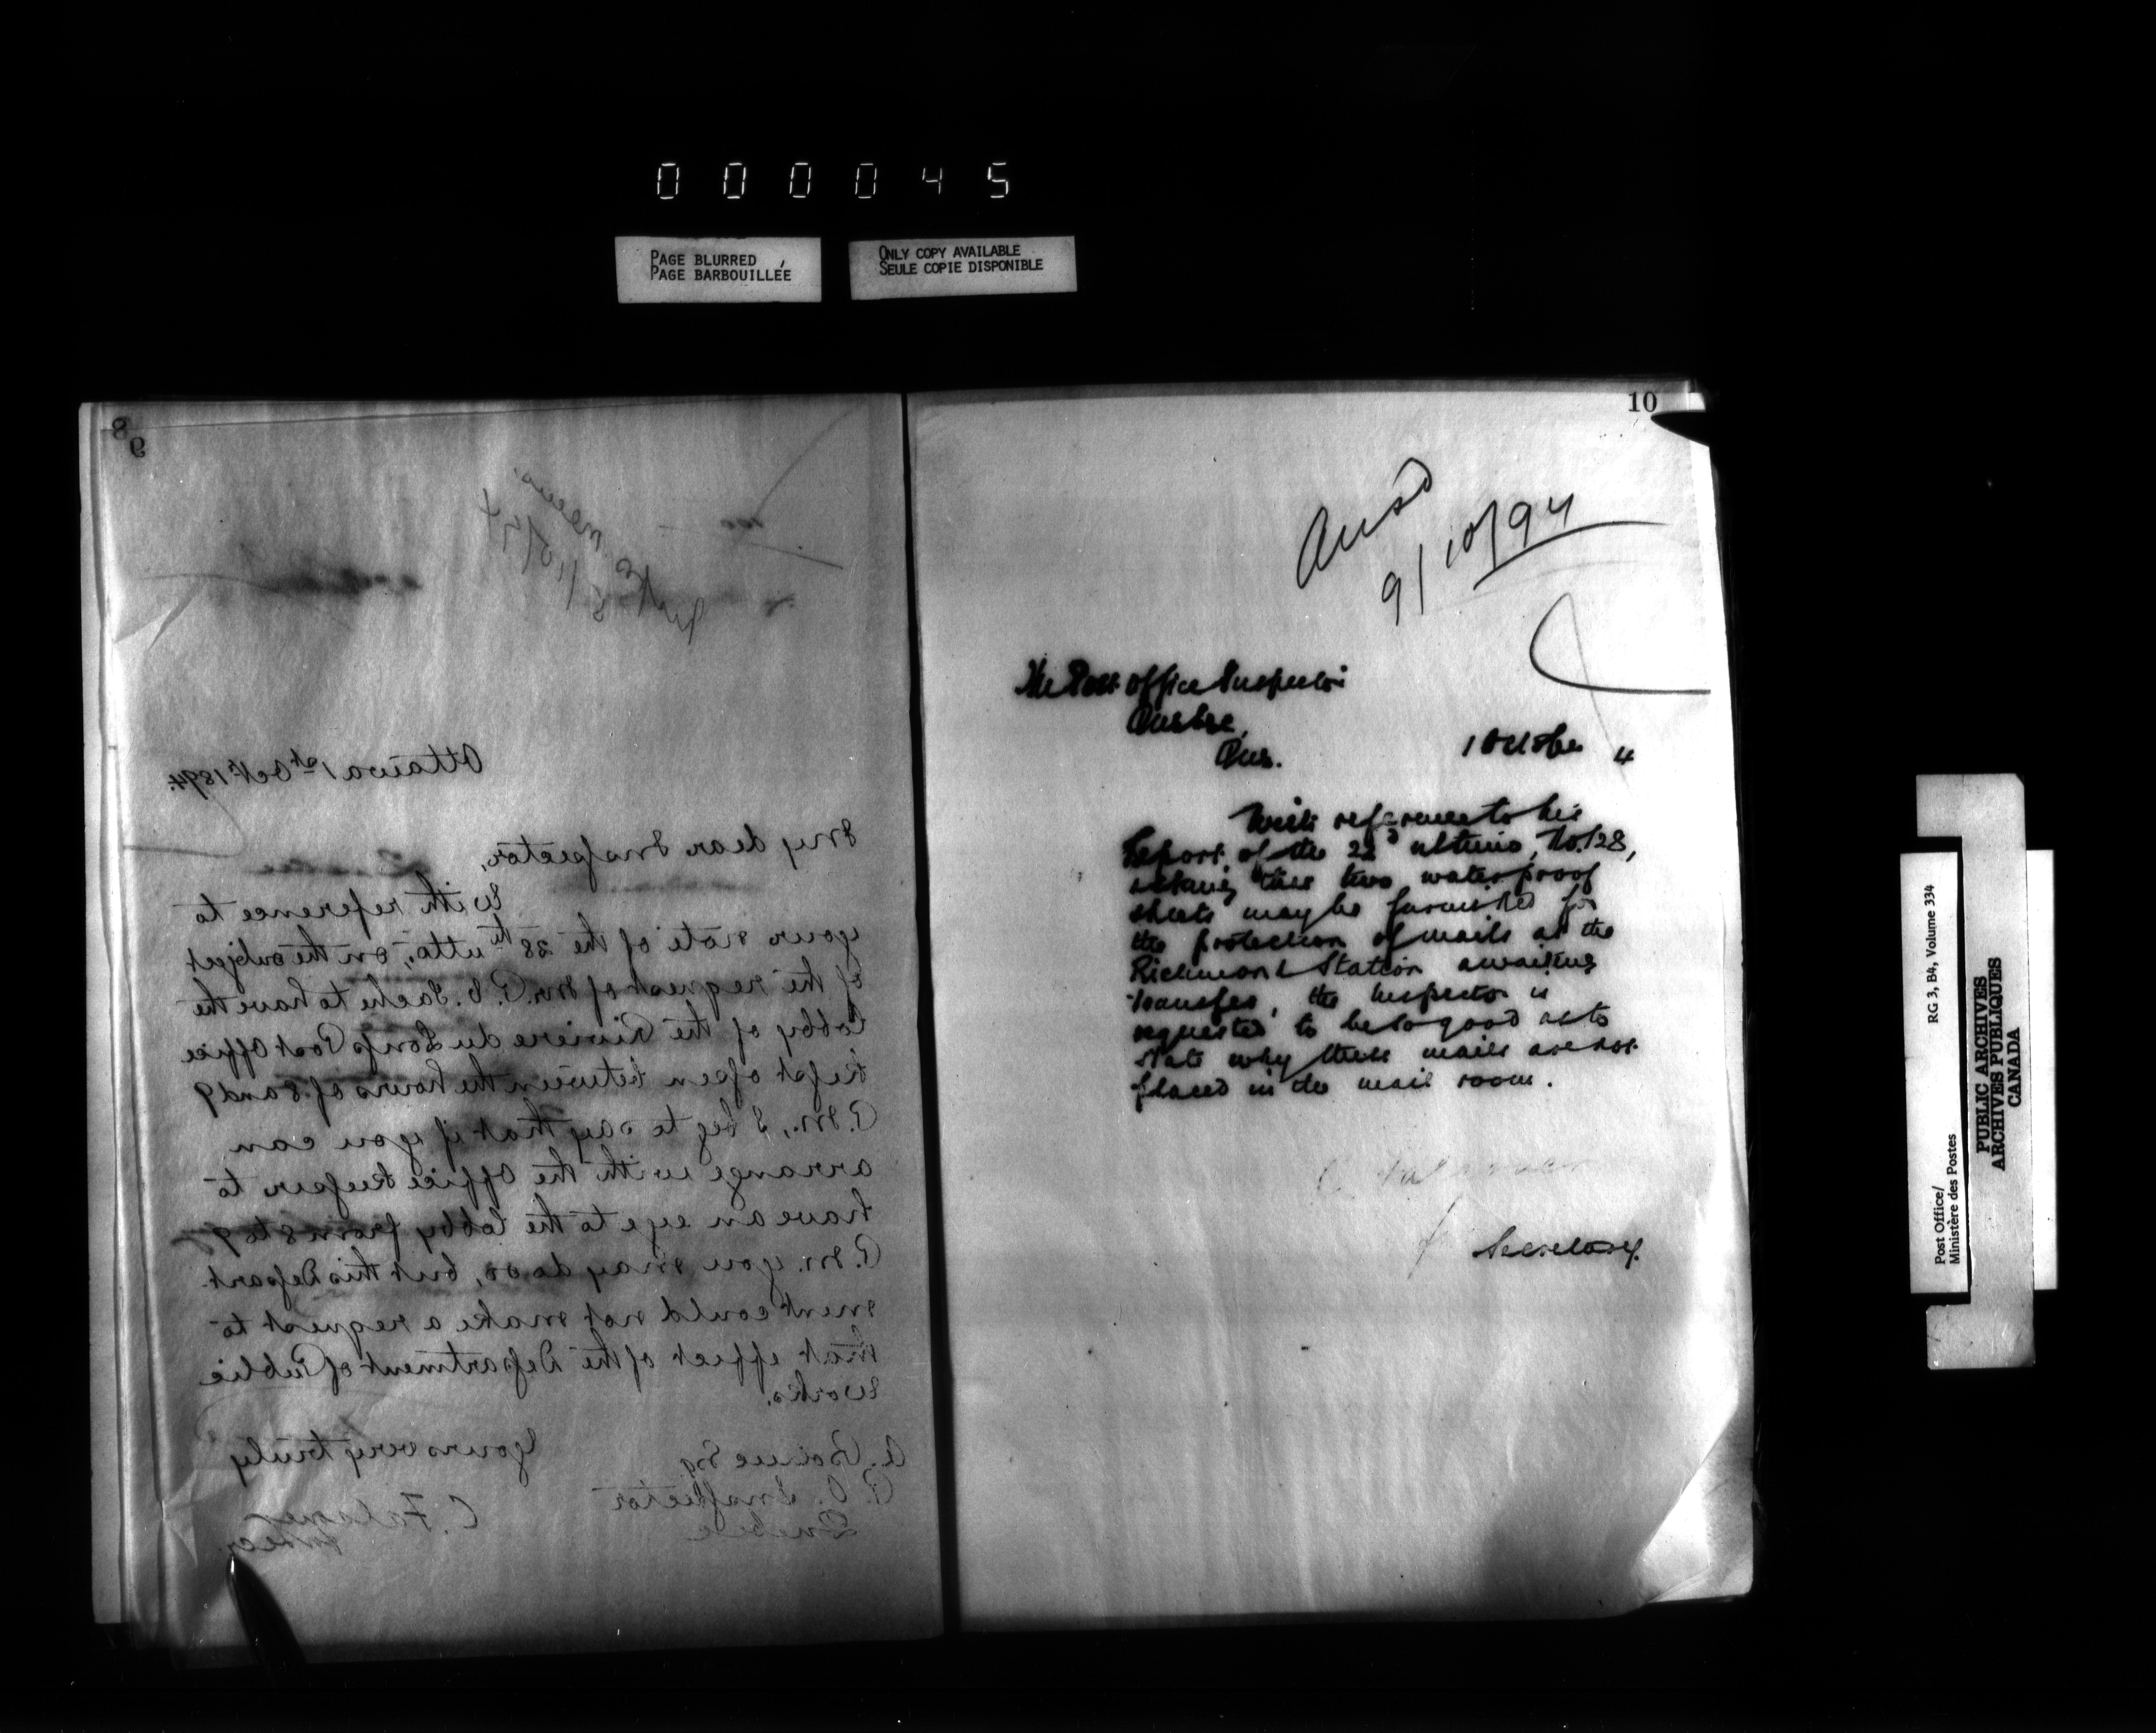 000045
PAGE BLURRED
PAGE BARBOUILLÉE
ONLY COPY AVAILABLE
SEULE COPIE DISPONIBLE
8
9
Ottawa 1st Oct 1894.
My dear Inspector,
With reference to
your note of the 28th ulto, on the subject
of the request of Mr. P. E. Tache to have the
lobby of the Riviere du Loup Post Office
kept open between the hours of 8 and 9
P.M., I beg to say that if you can
arrange with the Office Keeper to
have an eye to the lobby from 8 to 9
P.M. you may do so, but this Depart-
ment could not make a request to
that effect of the Department of Public
Works.
Yours very truly
A. Bolduc Esq
P. O. Inspector
Quebec
10
Ansd
9/10/94
The Post Office Inspector
Quebec,
Que.
1 October 4
With reference to his
Report of the 22d ultimo, No. 128,
asking that two waterproof
sheets may be furnished for
the protection of mails at the
Richmond Station awaiting
transfer, the Inspector is
requested to be so good as to
state why these mails are not
placed in the mail room.
Secretary.
RG 3, B4, Volume 334
Post Office/
Ministère des Postes
PUBLIC ARCHIVES
ARCHIVES PUBLIQUES
CANADA